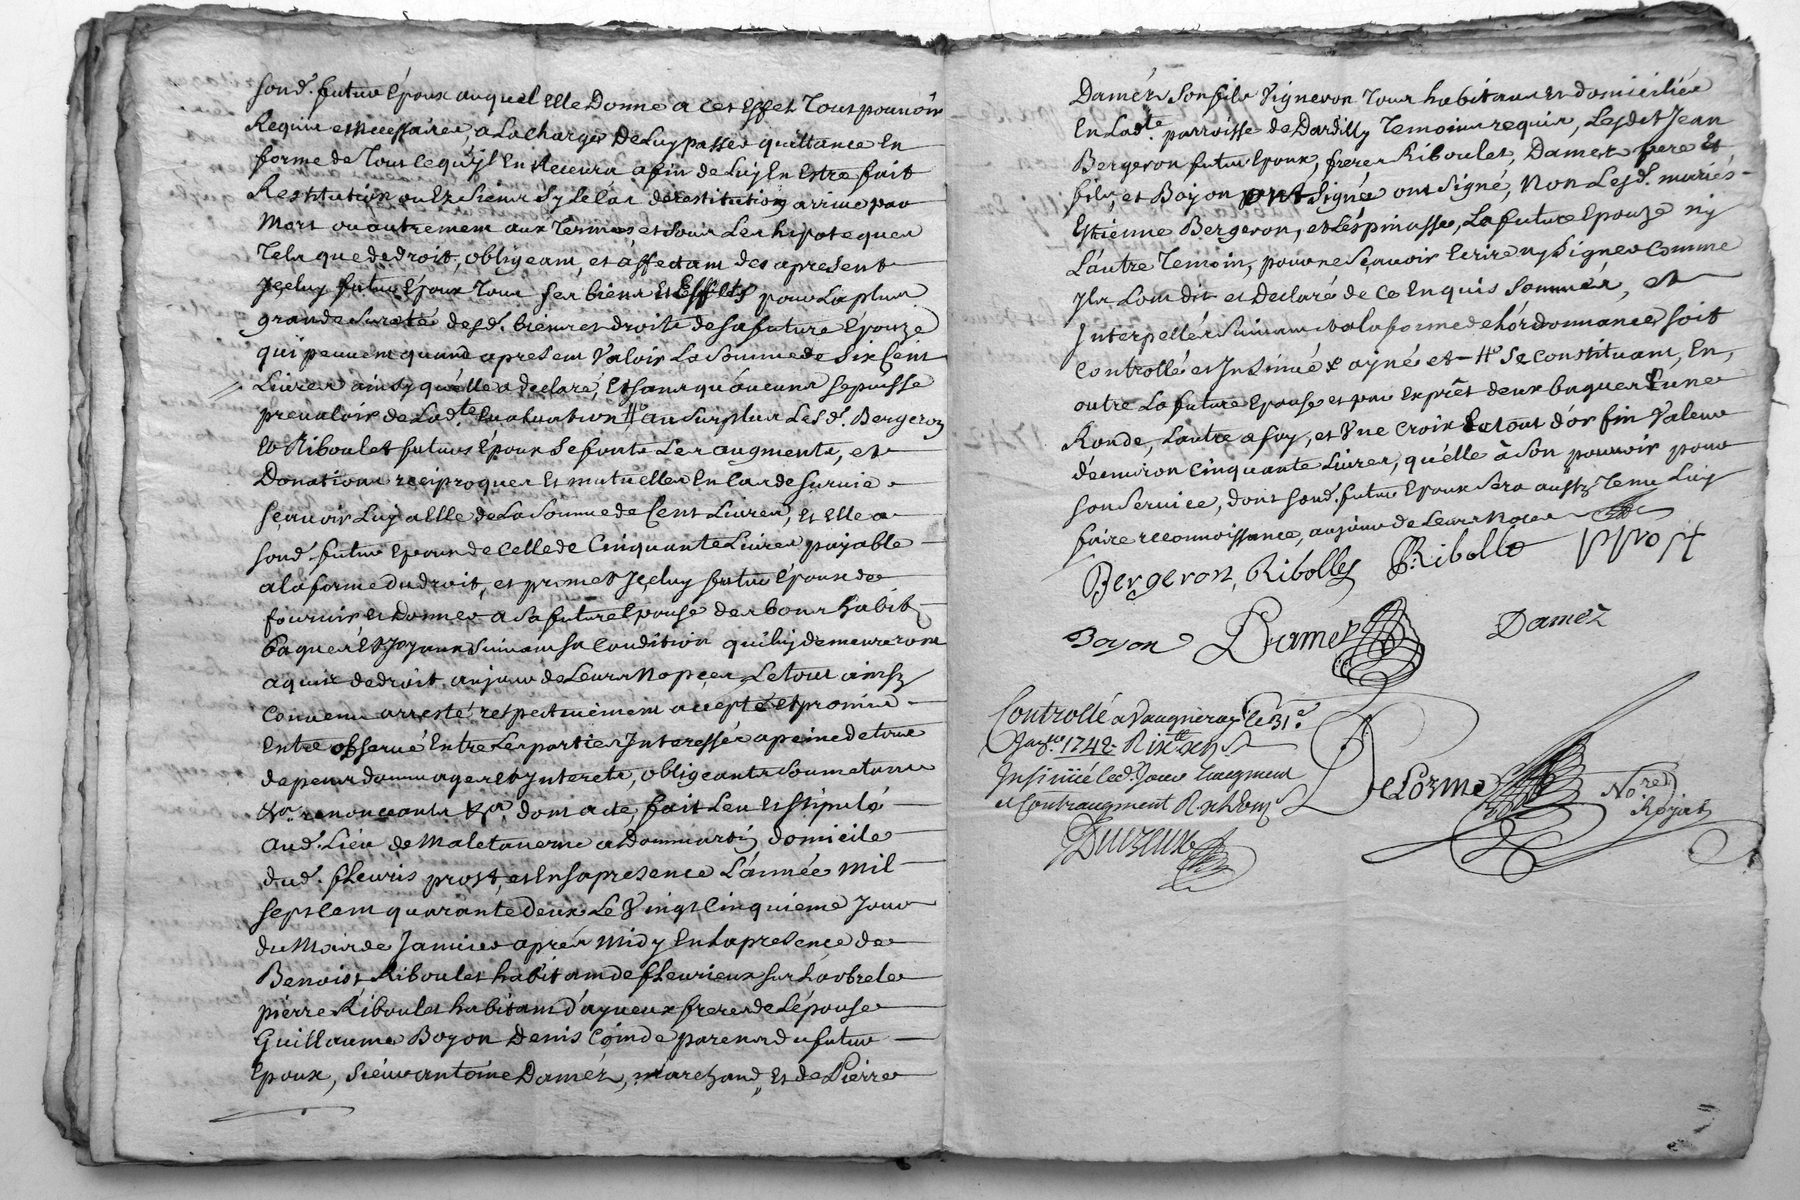 sond. futur Époux auquel Elle Donne a cet Effet Tout pouvoir
Requis et necessaire, a La charge De Luy passer quittance En
forme de Tout ce qu'jl En Recevra afin de Luy En Estre fait
Restitution ou Ez Siens Sy Le Cas de restitution arrive par
Mort ou autrement aux Termes et Sous Les hipoteques
Tels que de droit, obligeant, et affectant des apresent
Jceluy futur Époux Tous ses biens et Effets pour La plus
grande Sureté desd. biens et droits de sa future Epouze
qui peuvent quand apresent Valoir La Somme de Six Cent
Livres ainsy qu'elle a declaré, Et sans qu'aucuns se puisse
prevaloir de Lad.te Evaluation # au Surplus Lesd. Bergeron
Et Riboulet futurs Époux Se font Les augments, et
Donations reciproques Et mutuelles En Cas de Survie
sçavoir Luy a Elle de La Somme de Cent Livres, Et Elle a
sond. futur Epoux de Celle de Cinquante Livres payable
a la forme du droit, et promet Jceluy futur Époux de
fournir et Donner a Sa future Epouse des bons habits
baques Et Joyaux Suivant Sa Condition qui luy demeureront
aquis de droit au jour de Leurs Nopçes, Le tout ainsy
Convenu arresté respectivement accepté Et promis
Entre observé Entre Les parties Interessés a peine de tous
depens dommages Et Interets, obligeants Soumetants
&a. renonceants &a. dont acte, fait Leu Et Stipulé
aud. Lieu de Maletaverne a Dommartin domicile
dud. fleuris prost, et En sa presence L'année mil
sept Cent quarante deux Le Vingt Cinquieme Jour
du Mois de Janvier après midy En La presence de
Benoist Riboulet habitant de fleurieux sur L'arbresle
pierre Riboulet habitant d'ayveux freres de L'épouse
Guillaume Boyon Denis Coinde parens du futur
Epoux, Sieur antoine Damez, marchand, et de Pierre
Damez Son fils Vigneron Tous habitans Et domiciliés
En Lad.te parroisse de Dardilly Temoins requis, Lesdits Jean
Bergeron futur Epoux, freres Riboulet, Damez pere Et
fils, et Boyon ont Signé ont Signé, Non Lesd. mariés
Etienne Bergeron, et Lespinasse, La future Epouze ny
L'autre Temoin, pour ne Sçavoir Ecrire ny Signer Comme
Jls L'ont dit et Declaré de Ce Enquis Sommés, et
Interpellés Suivant la forme de L'ordonnance, soit
Controllé et Insinué # Se Constituant, En
outre La future Epouse et par Exprêt deux bagues L'une
Ronde, L'autre a foy, et Une Croix Le tout d'or fin Valeur
d'environ Cinquante Livres, qu'elle à Son pouvoir pour
son Service, dont sond. futur Epoux Sera aussy Tenu Luy
faire reconnoissance, au jour de Leurs Noces
Bergeron, Ribolles P. Ribolle pprost
Boyon Damez Damez
Controllé a Vaugneray le 31.e
Janv.er 1742.
Insinué led. Jour L'augment
et Contraugment
Delorme No.re Royal